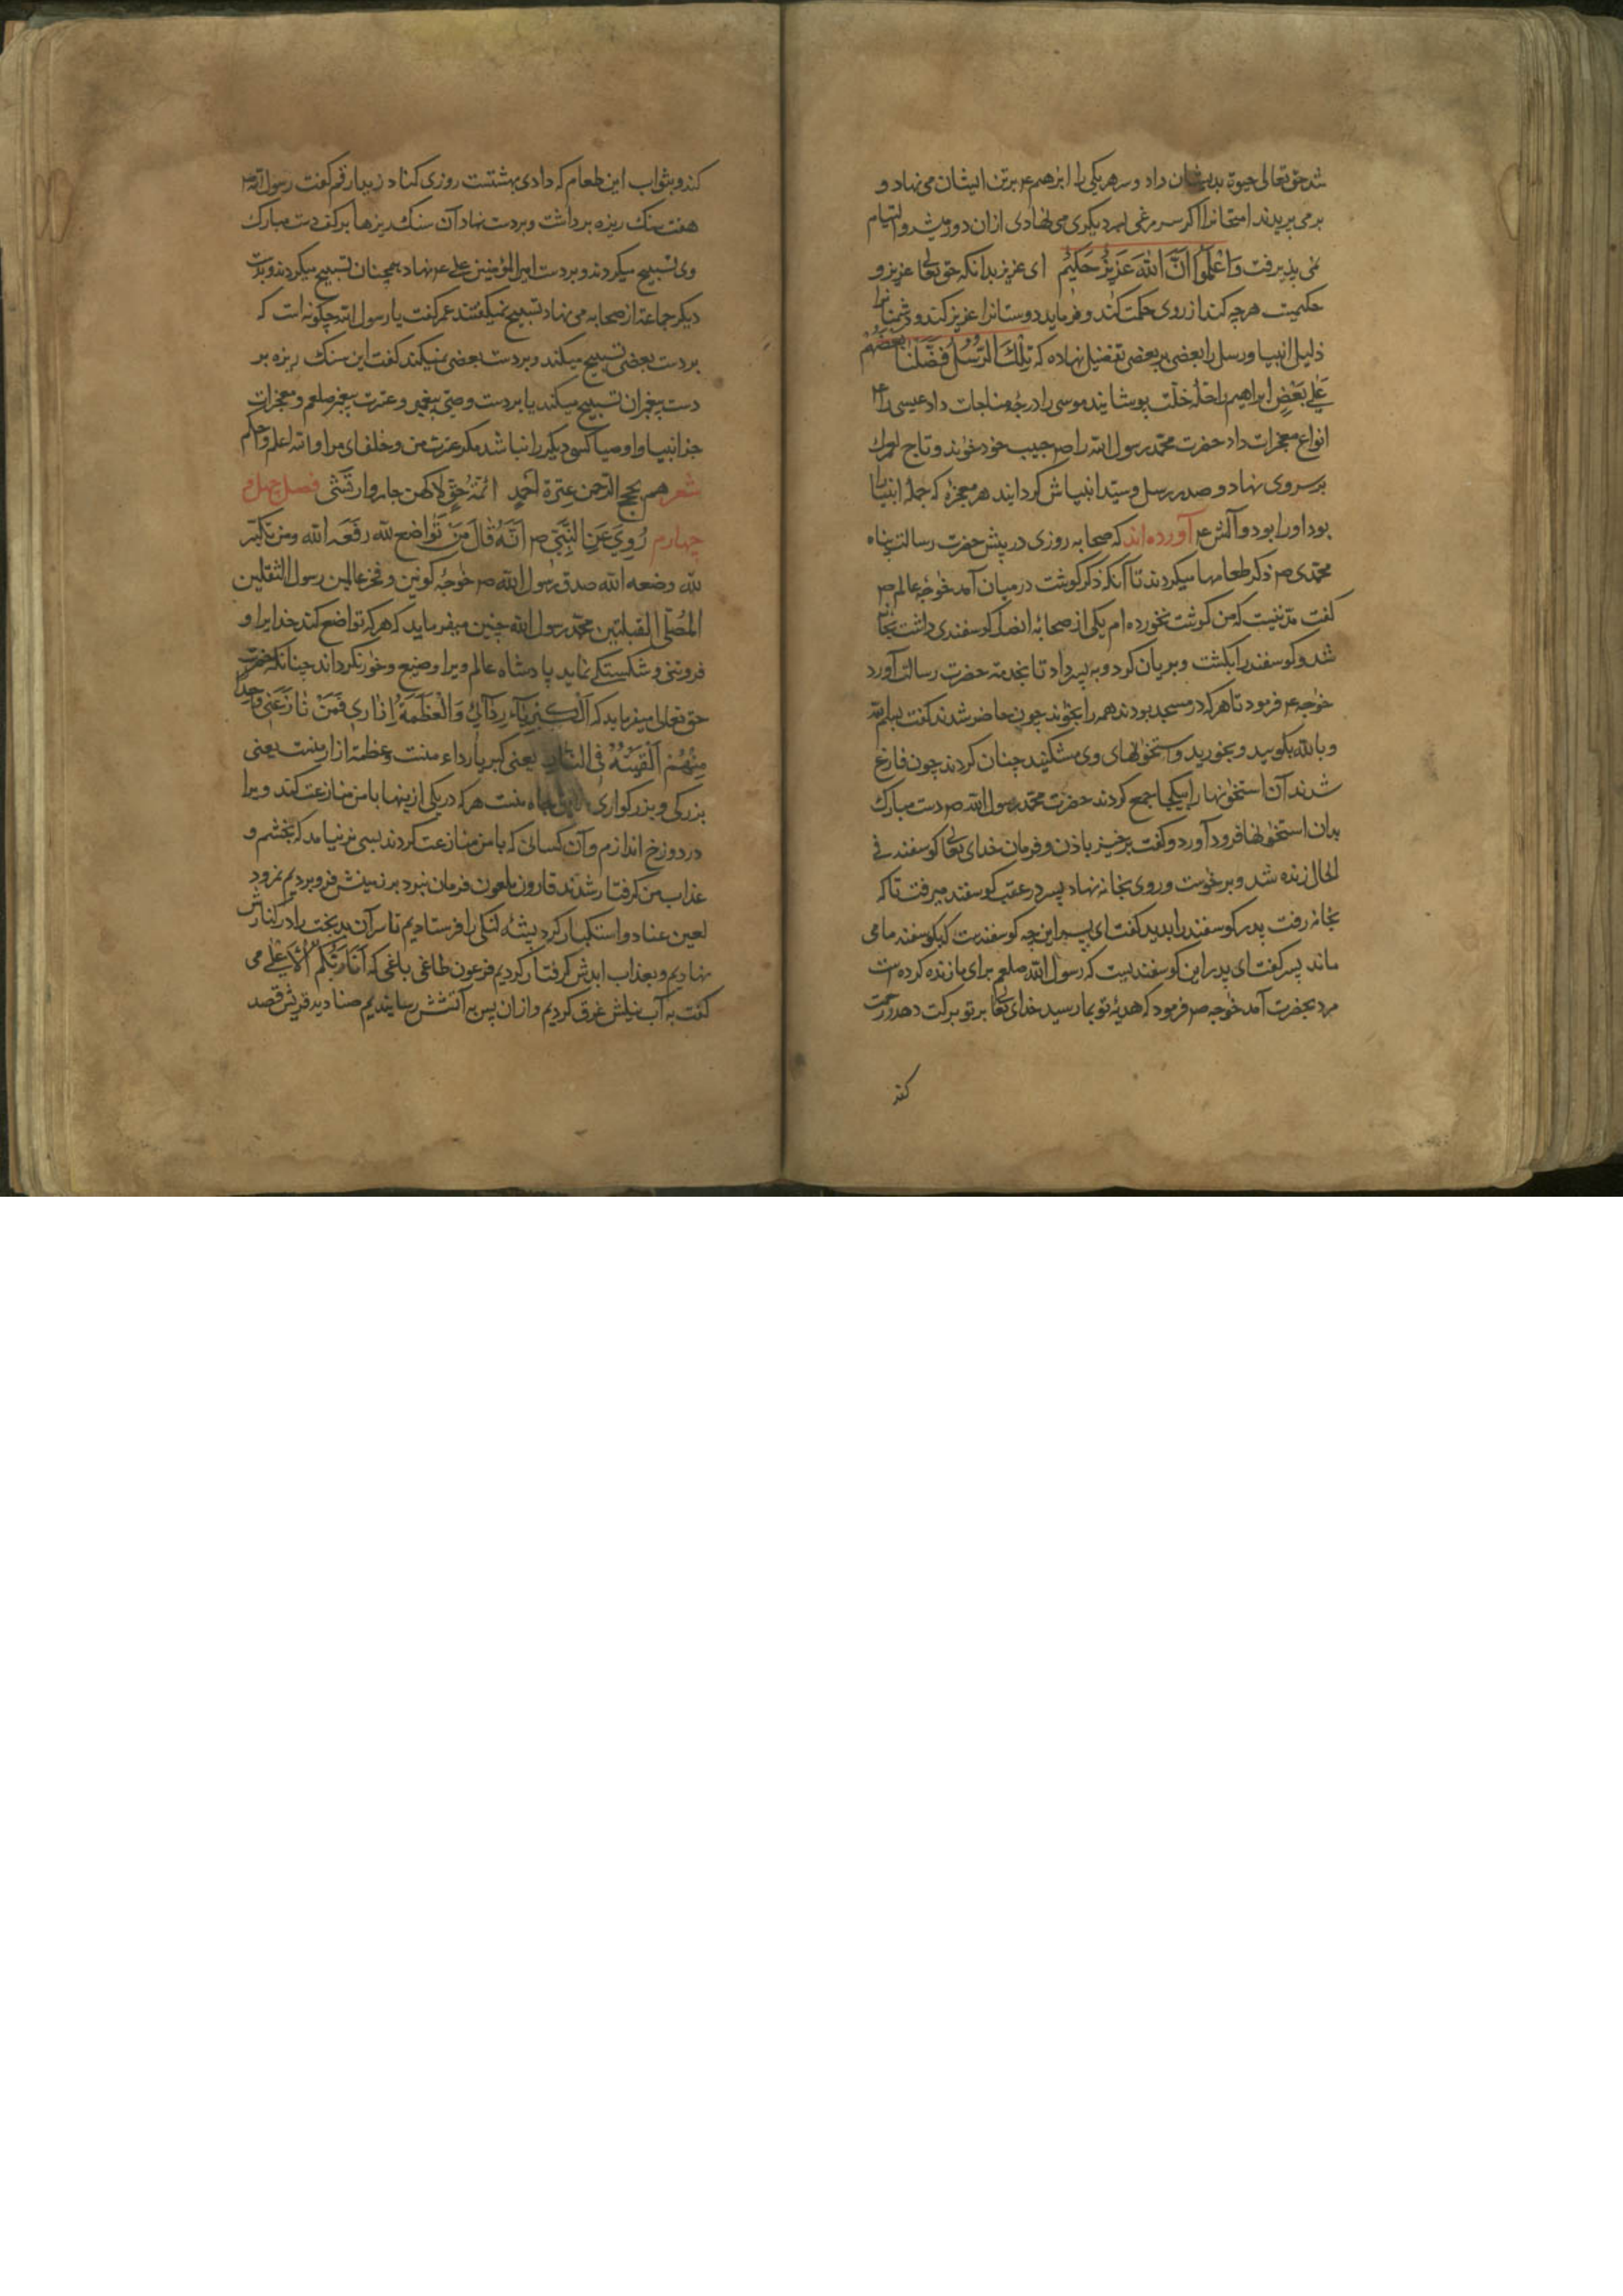 شد حق تعالی حیوة بدیشان داد و سر هر یکی را ابرهیم ع برتن ایشان می نهاد و
برمی پریدند امتحانرا اکر سر مرغی بر دیکری می نهادی ازان دور میشد و التیام
نمی پذیرفت وَاعْلَمْوا انَّ اللهَ عَزِیزٌ حَکیمٌ ای عزیز بدانکه حق تعالی عزیز و
حکیمست هرچه کند از روی حکمت کند و فرماید دوستانرا عزیز کند و دشمنانرا
ذلیل انبیا و رسل را بعضی بر بعضی تفضیل نهاده که تِلْکَ الرُّسُلُ فَضَّلْنَا بَعْضَهُمْ
عَلَی بَعْضٍ ابراهیم را حلهٔ خلت پوشانید موسی را درجهٔ مناجات داد عیسی را ع
انواع معجزات داد حضرت محمد رسول الله را ص حبیب خود خواند و تاج لعمرک
بر سر وی نهاد و صدر رسل و سید انبیاش کردانید هر معجزه که جمله انبیا را
بود او را بود و آلش ع آورده اند که صحابه روزی در پیش حضرت رسالت پناه
محمدی ص ذکر طعامها میکردند تا آنکه ذکر کوشت درمیان آمد خواجهٔ عالم ص
کفت مدتیست که من کوشت نخورده ام یکی از صحابهٔ انصار کوسفندی داشت بخانه
شد و کوسفند را بکشت و بریان کرد و به پسر داد تا بخدمت حضرت رسالت آورد
خواجه ع فرمود تا هر که در مسجد بودند همه را بخواند چون حاضر شدند کفت بسم الله
و بالله بکویید و بخورید و استخوانهای وی مشکنید چنان کردند چون فارغ
شدند آن استخوانها را بیکجا جمع کردند حضرت محمد رسول الله ص دست مبارک
بدان استخوانها فرود آورد و کفت برخیز باذن و فرمان خدای تعالی کوسفند فی
الحال زنده شد و برخوست و روی بخانه نهاد پسر در عقب کوسفند میرفت تا که
بخانه رفت پدر کوسفند را بدید کفت ای پسر این چه کوسفندست که بکوسفند ما می
ماند پسر کفت ای پدر این کوسفندیست که رسول الله صلعم برای ما زنده کرده است
مرد بحضرت آمد خواجه ص فرمود که هدیهٔ تو بما رسید خدای تعالی بر تو برکت دهد و رحمت
کند
کند و بثواب این طعام که دادی بهشتت روزی کناد زید ارقم کفت رسول الله ص
هفت سنک ریزه برداشت و بردست نهاد آن سنک ریزها برکف دست مبارک
وی تسبیح میکردند و بردست امیرالمؤمنین علی ع نهاد همچنان تسبیح میکردند و بدست
دیکر جماعت از صحابه می نهاد تسبیح نمیکفتند عمر کفت یا رسول الله چکونه است که
بردست بعضی تسبیح میکند و بردست بعضی نمیکند کفت این سنک ریزه بر
دست پیغمبران تسبیح میکند یا بردست وصی پیغمبر و عترت پیغمبر صلعم و معجزات
جز انبیا و اوصیا کسی دیکر را نباشد مکر عترت من و خلفای مرا والله اعلم و احکم
شعر هم حجج الرحمن عترة احمدٍ ائمّة حقٍ لا کمن جار وارتشی فصل چهل و
چهارم رُوِیَ عَنِ النَّبِّی ص اَنَّهُ قَالَ مَنْ تَواضع لله رفعَه الله ومن تکبّر
لله وضعه الله صدق رسول الله ص خواجهٔ کونین و فخر عالمین رسول الثقلین
المُصَلّی القبلتین محمد رسول الله چنین میفرماید که هرکه تواضع کند خدایرا و
فروتنی و شکستکی نماید پادشاه عالم ویرا وضیع و خوار نکرداند چنانکه حضرت
حق تعالی میفرماید که اَلْکِبْرِیَاءُ رِدَآئِی وَالْعَظَمَةُ اِزَارِی فَمَنْ نَازَعَنِی وَاحِدًا
مِنْهُمَا اَلْقَیْتُهُ فی النّار یعنی کبریا رداء منست و عظمة ازار منست یعنی
بزرکی و بزرکواری منست هرکه در یکی ازینها با من منازعت کند ویرا
در دوزخ اندازم و آن کسانی که با من منازعت کردند بسی برنیامد که بخشم و
عذاب من کرفتار شدند قارون ملعون فرمان نبرد بر زمینش فرو بردیم نمرود
لعین عناد و استکبار کرد پشهٔ لنکی را فرستادیم تا سر آن بدبخت را در کنارش
نهادیم و بعذاب ابدش کرفتار کردیم فرعون طاغی باغی که اَنَا رَبُّکُمُ الْاَعْلَی می
کفت به آب نیلش غرق کردیم و ازان پس به آتشش رسانیدیم صنادید قریش قصد